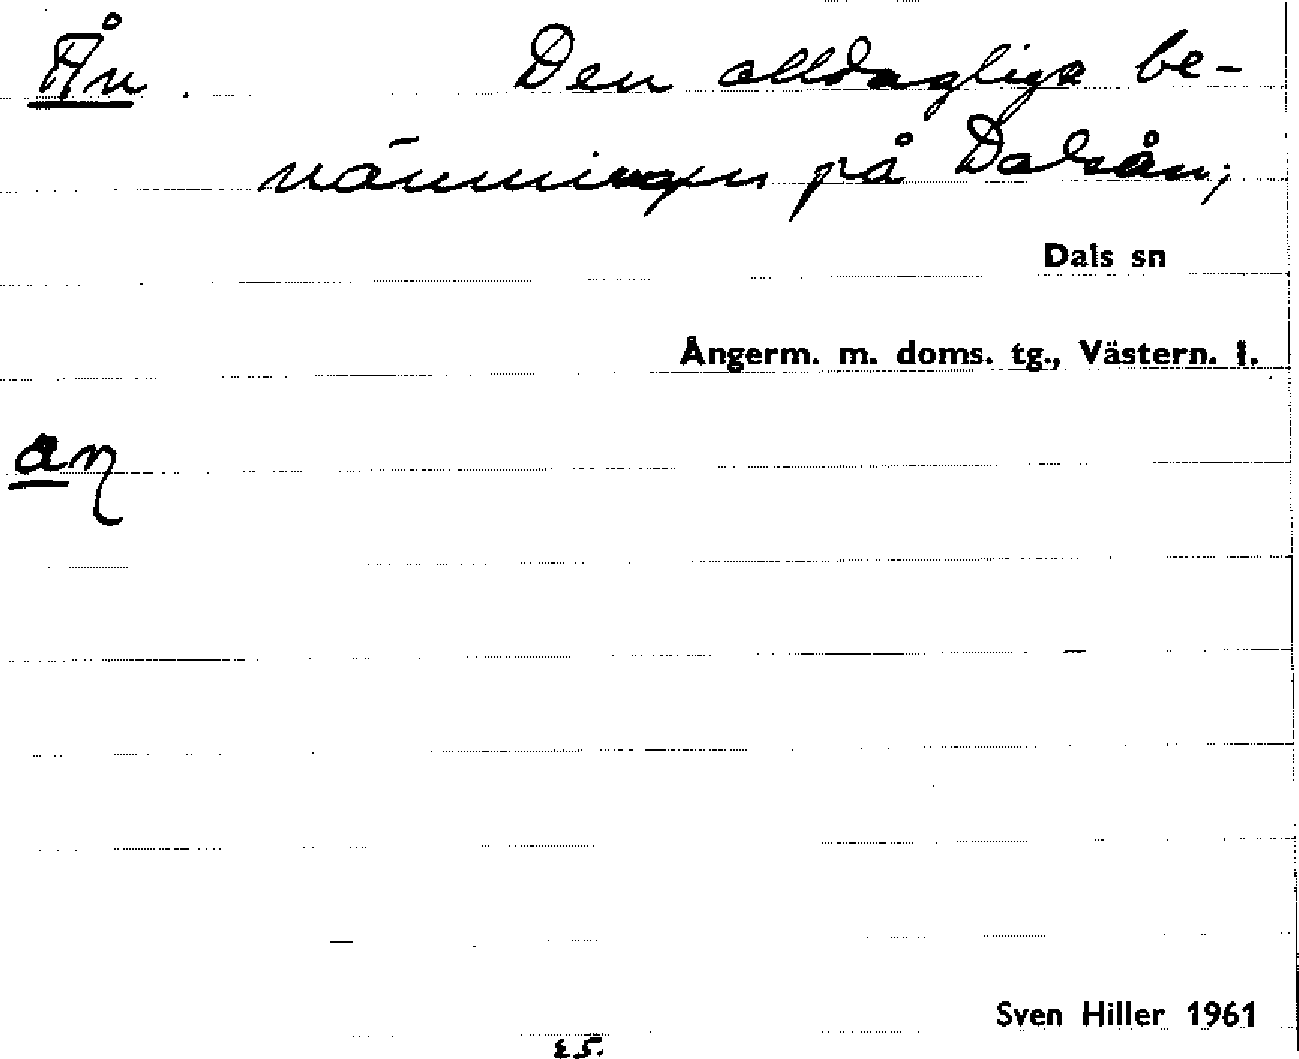 Ån. Den alldagliga be-
nämningen på Dalsån;
Dals sn
Ångerm. m. doms. tg., Västern. l.
an
Sven Hiller 1961